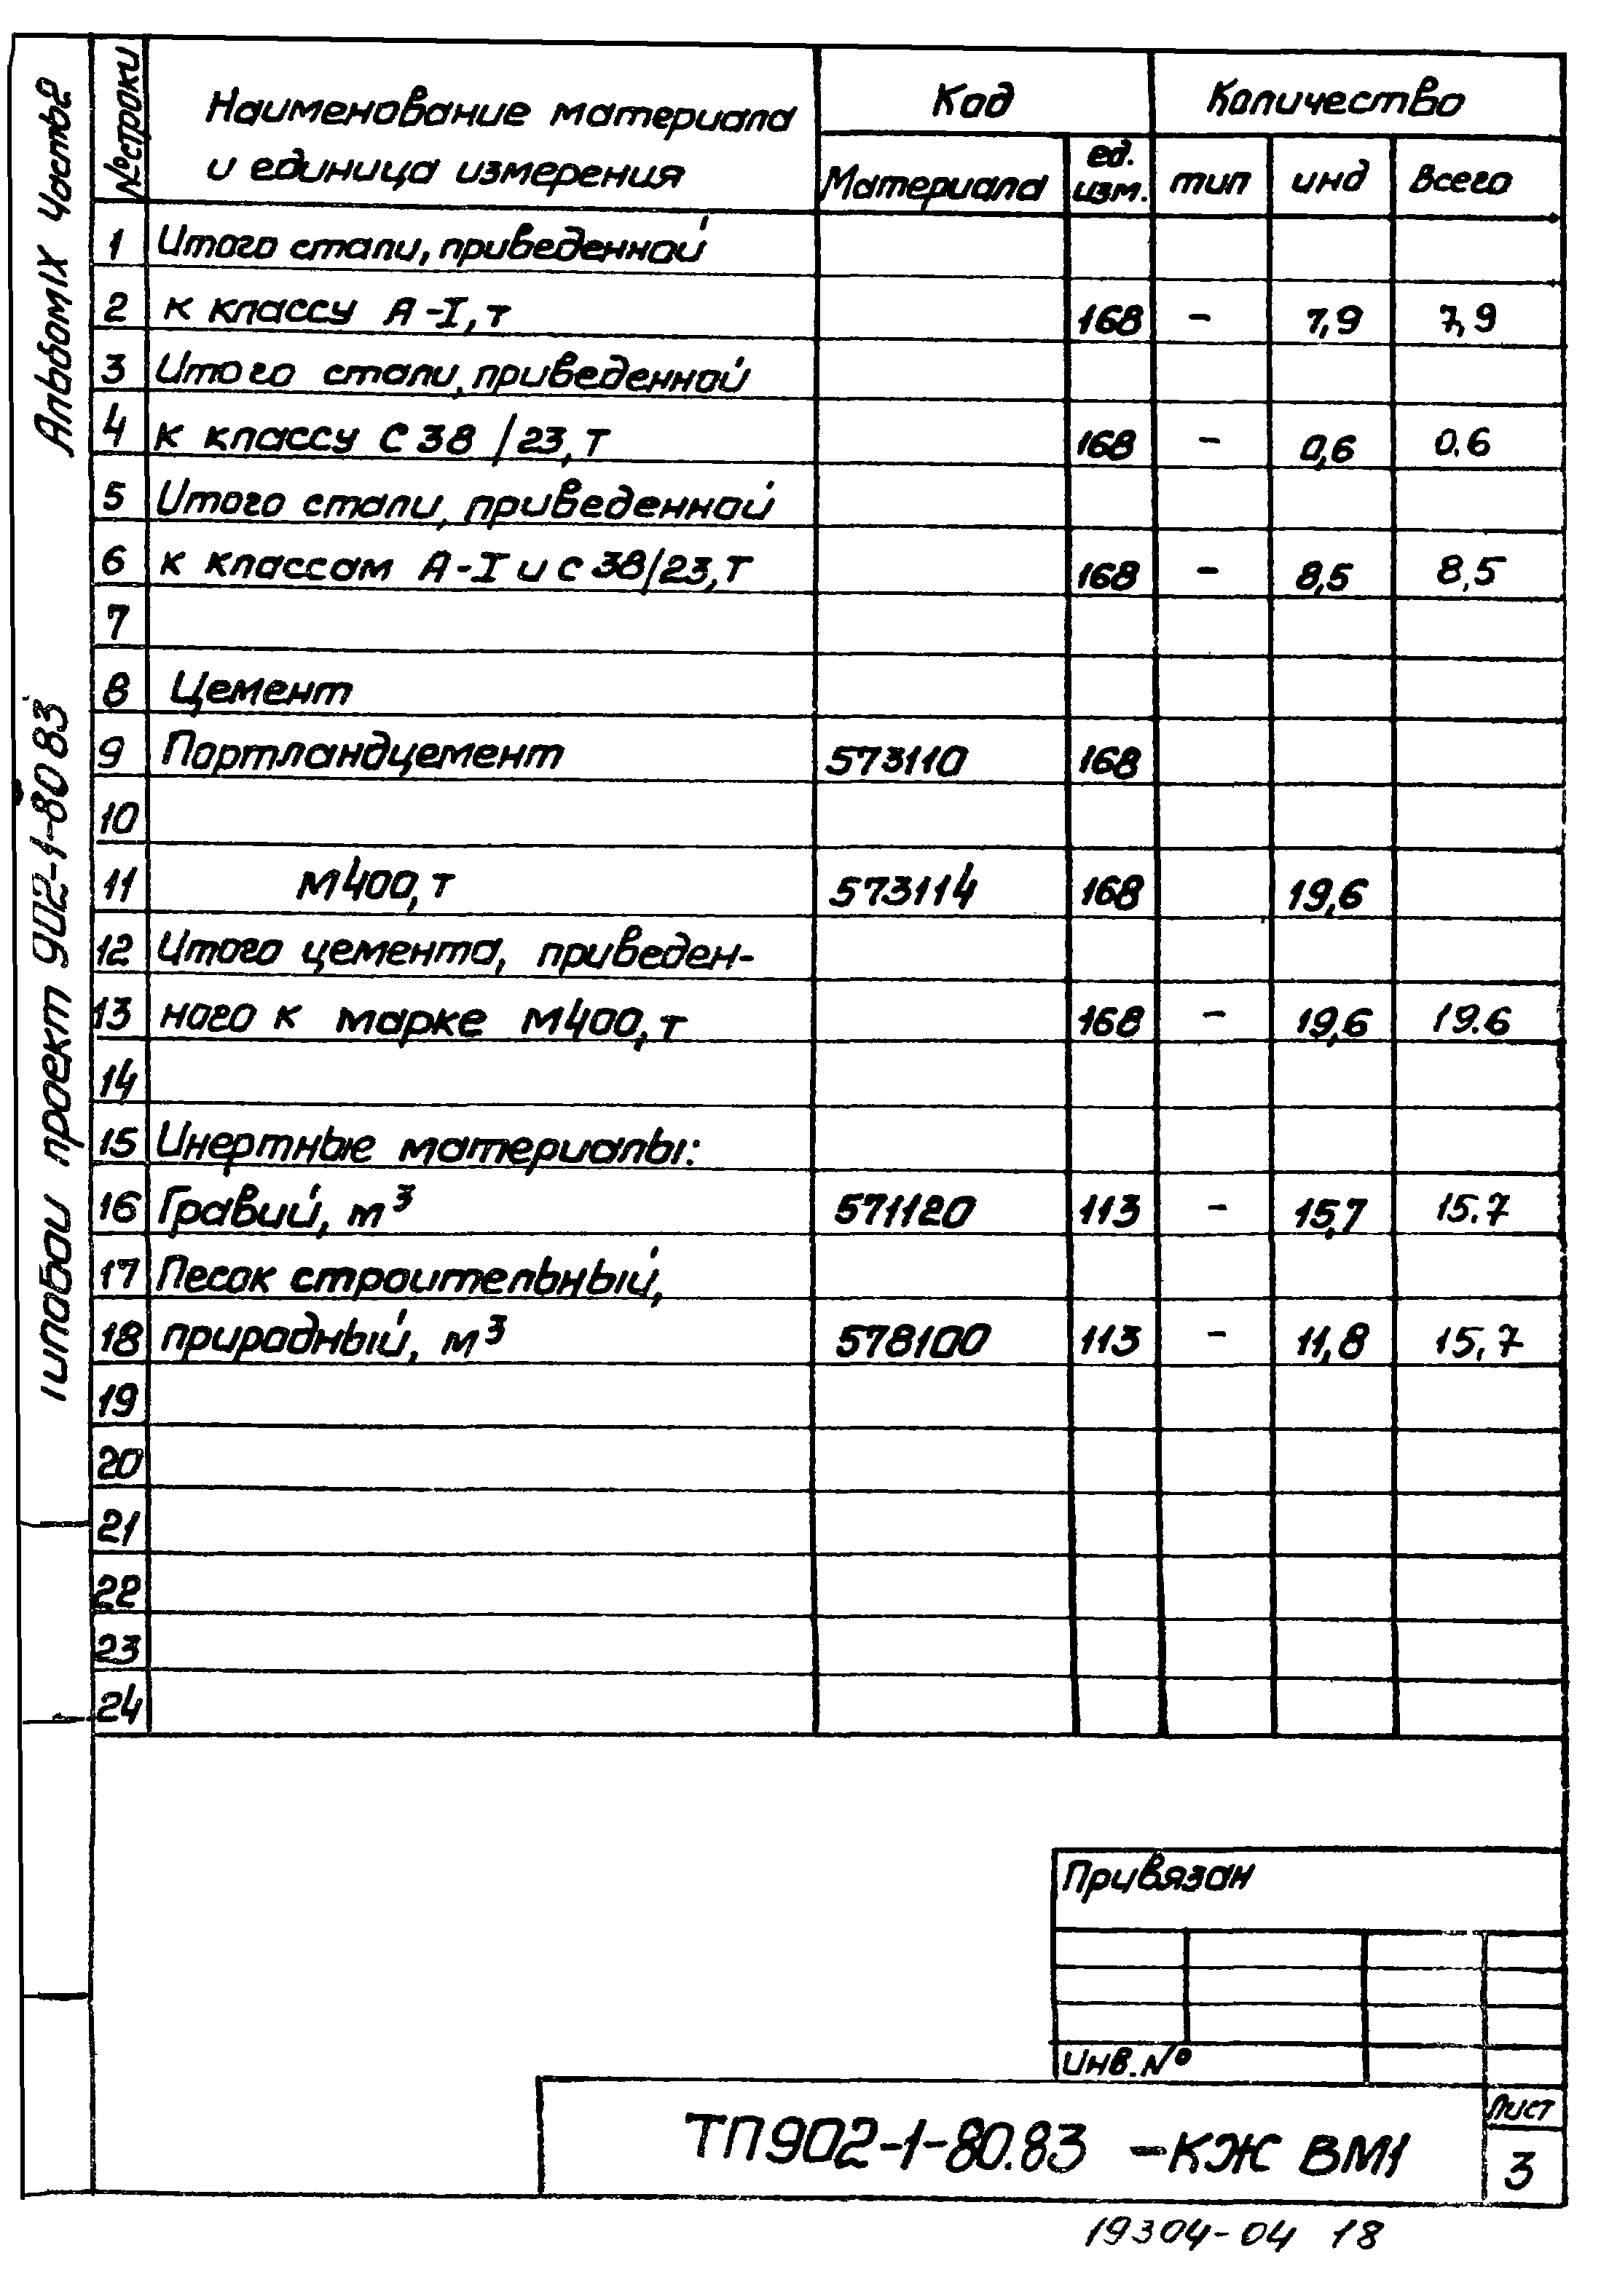 Альбом IX Часть 2
Типовой проект 902-1-80 83
№ строки Наименование материала и единица измерения Код Количество
Материала ед. изм. тип инд всего
1 Итого стали, приведенной
2 к классу А-I, т 168 - 7,9 7,9
3 Итого стали, приведенной
4 к классу С 38/23, т 168 - 0,6 0.6
5 Итого стали, приведенной
6 к классам А-I и С 38/23, т 168 - 8,5 8,5
7
8 Цемент
9 Портландцемент 573110 168
10
11 М400, т 573114 168 19,6
12 Итого цемента, приведен-
13 ного к марке М400, т 168 - 19,6 19.6
14
15 Инертные материалы:
16 Гравий, м³ 571120 113 - 15,7 15.7
17 Песок строительный,
18 природный, м³ 578100 113 - 11,8 15,7
19
20
21
22
23
24
Привязан
Инв. №
ТП902-1-80.83 -КЖ ВМ1
Лист
3
19304-04 18